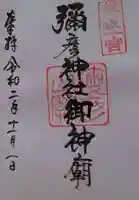 彌彦神社御神廟
奉拝 令和二年十一月一日